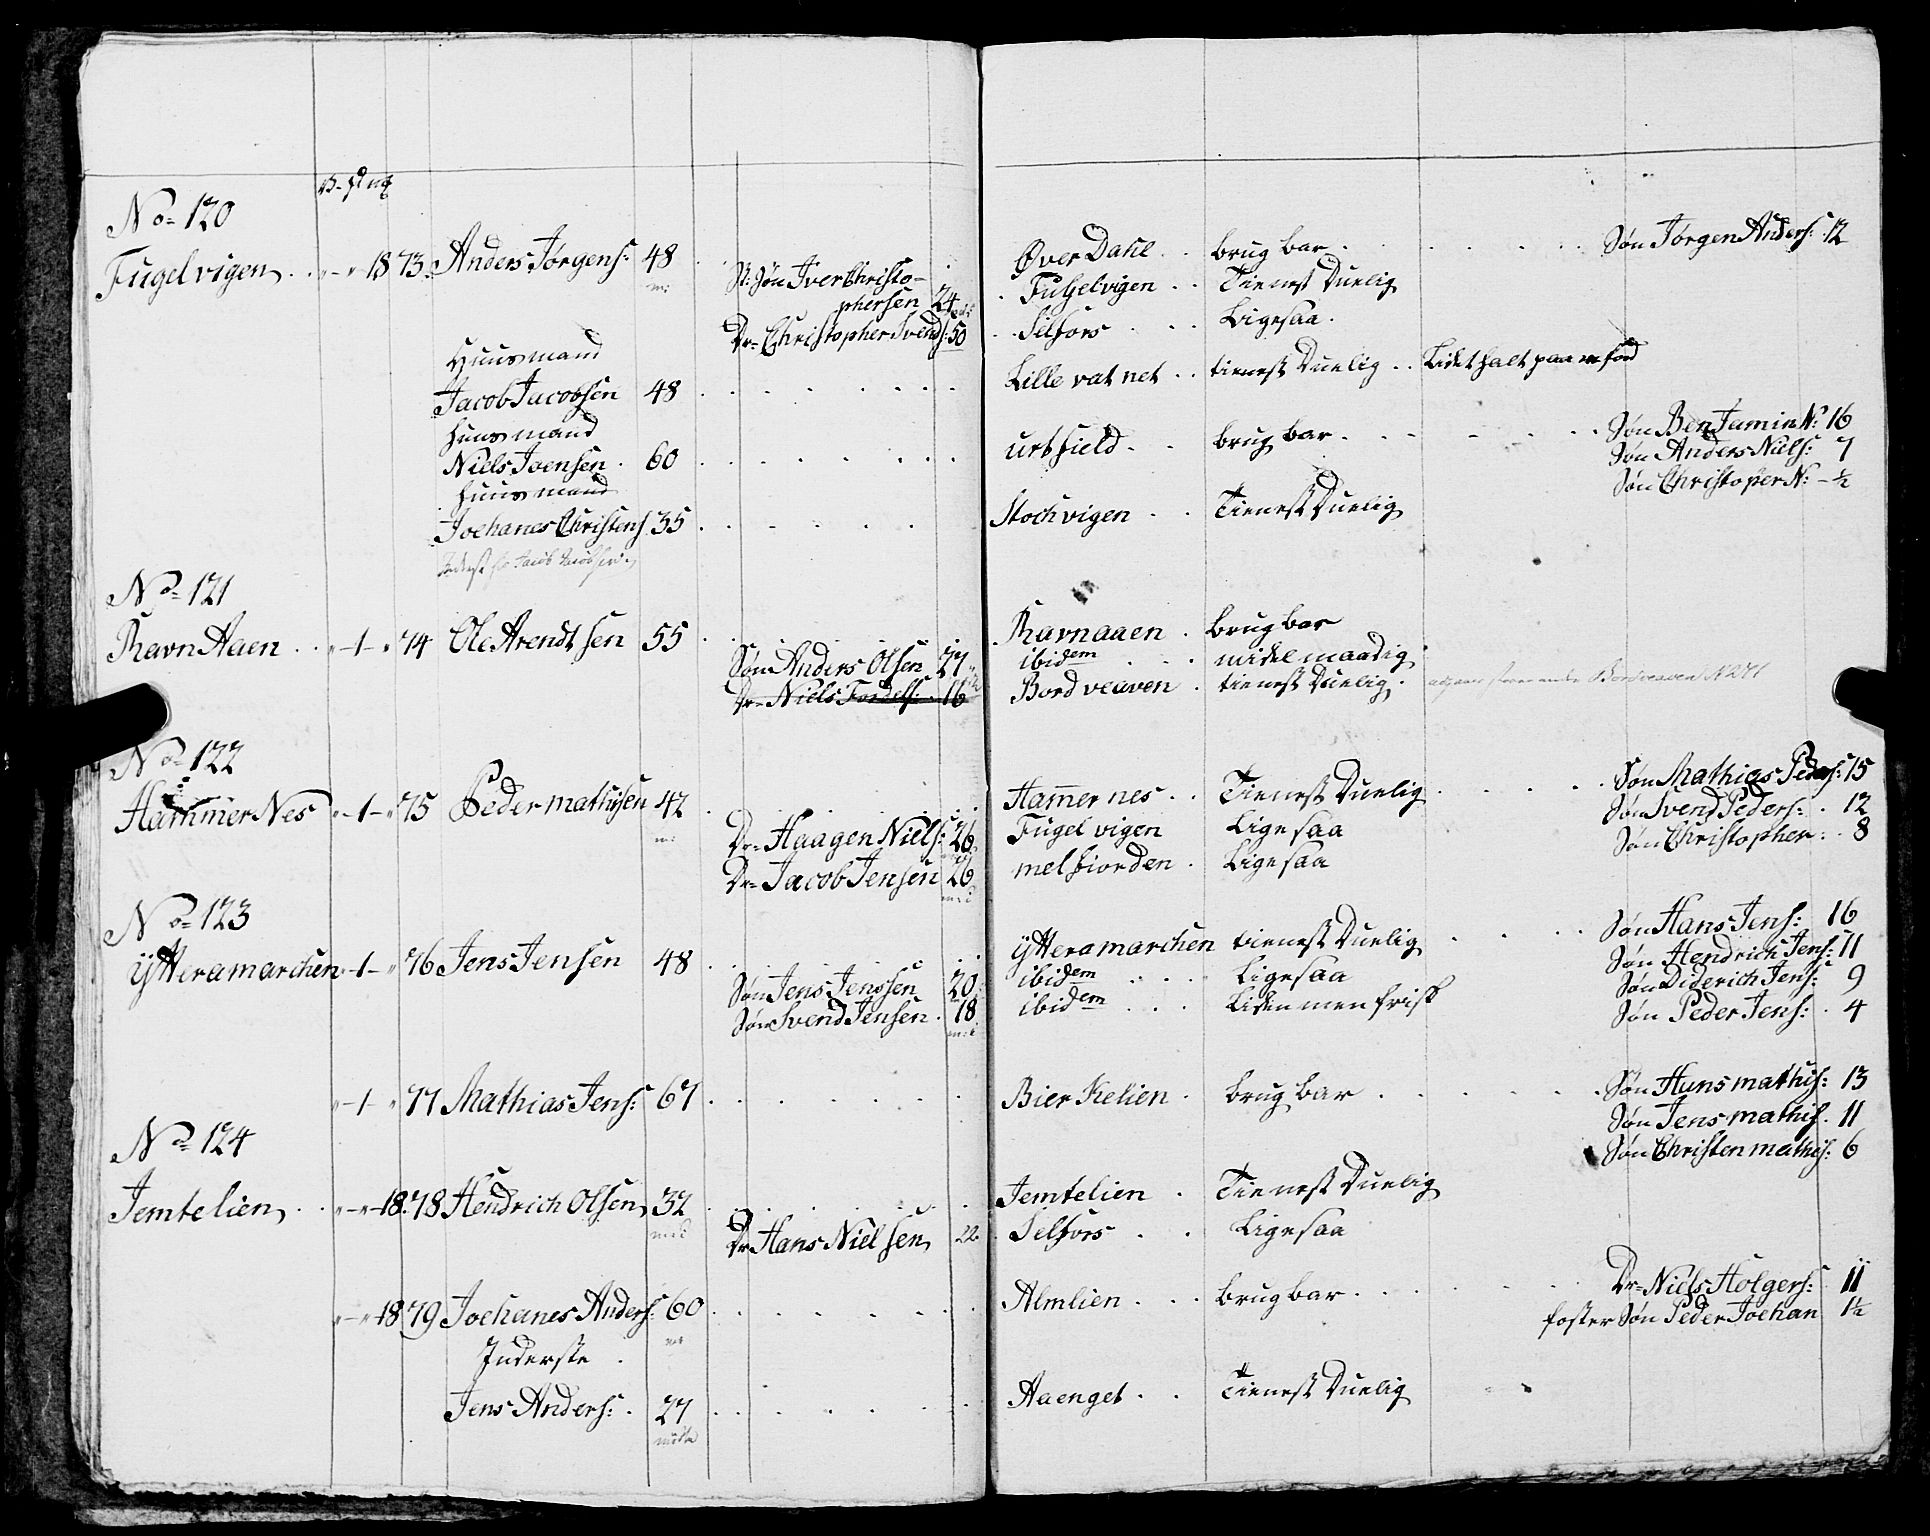 No= 120
Fugelvigen 18 73. Anders Jørgens: 48 Øver Dahl brug bar Søn Jørgen Anders: 12
St: Søn Iver Christo-
phersen 24 Fugelvigen Tienest Duelig
Dr= Christopher Svends: 50 Selfors Ligesaa
Huusmand
Jacob Jacobsen 48 Lille vatnet tienest Duelig Lidet halt paa
huusmand
Niels Joensen 60 urtfield brug bar Søn BenJamin N: 16
Søn Anders Niels: 7
Søn Christoper N: - ½
huusmand
Joehanes Christens 35 Stochvigen Tienest Duelig
No= 121
Ravn Aaen -1- 74 Ole Arendtsen 55 Ravnaaen brugbar
Søn Anders Olsen 27 ibidem midelmaadig
Dr= Niels Fordels: 16 Bordveaven tienest Duelig Bordveaven N 271
No= 122
Hammer Nes -1- 75 Peder mathisen 42 Hamer nes Tienest Duelig Søn Mathias Peders: 15
Dr= Haagen Niels: 26 Fugel vigen Ligesaa Søn Svend Peders: 12
Dr= Jacob Jensen 26 melfiorden Ligesaa Søn Christopher: 8
No= 123
Ytteramarchen -1- 76 Jens Jensen 48 Ytteramarchen tienest Duelig Søn Hans Jens: 16
Søn Jens Jenssen 20 ibidem Ligesaa Søn Hendrich Jens: 11
Søn Svend Jensen 18 ibidem Liden men frisk Søn Diderich Jens: 9
Søn Peder Jens: 4
-1- 77 Mathias Jens: 67 Bierkelien brug bar Søn Hans mathis: 13
Søn Jens mathis. 11
Søn Christen mathis: 6
No= 124
Jemtelien 18. 78 Hendrich Olsen 32 Jemtelien Tienest Duelig
Dr Hans Nielsen 22 Selfors Ligesaa
18 79 Joehanes Anders: 60 Almlien brugbar Dr= Niels Holgers: 11
foster Søn Peder Joehan 1½
Inderste
Jens Anders: 27 Aaenget Tienest Duelig